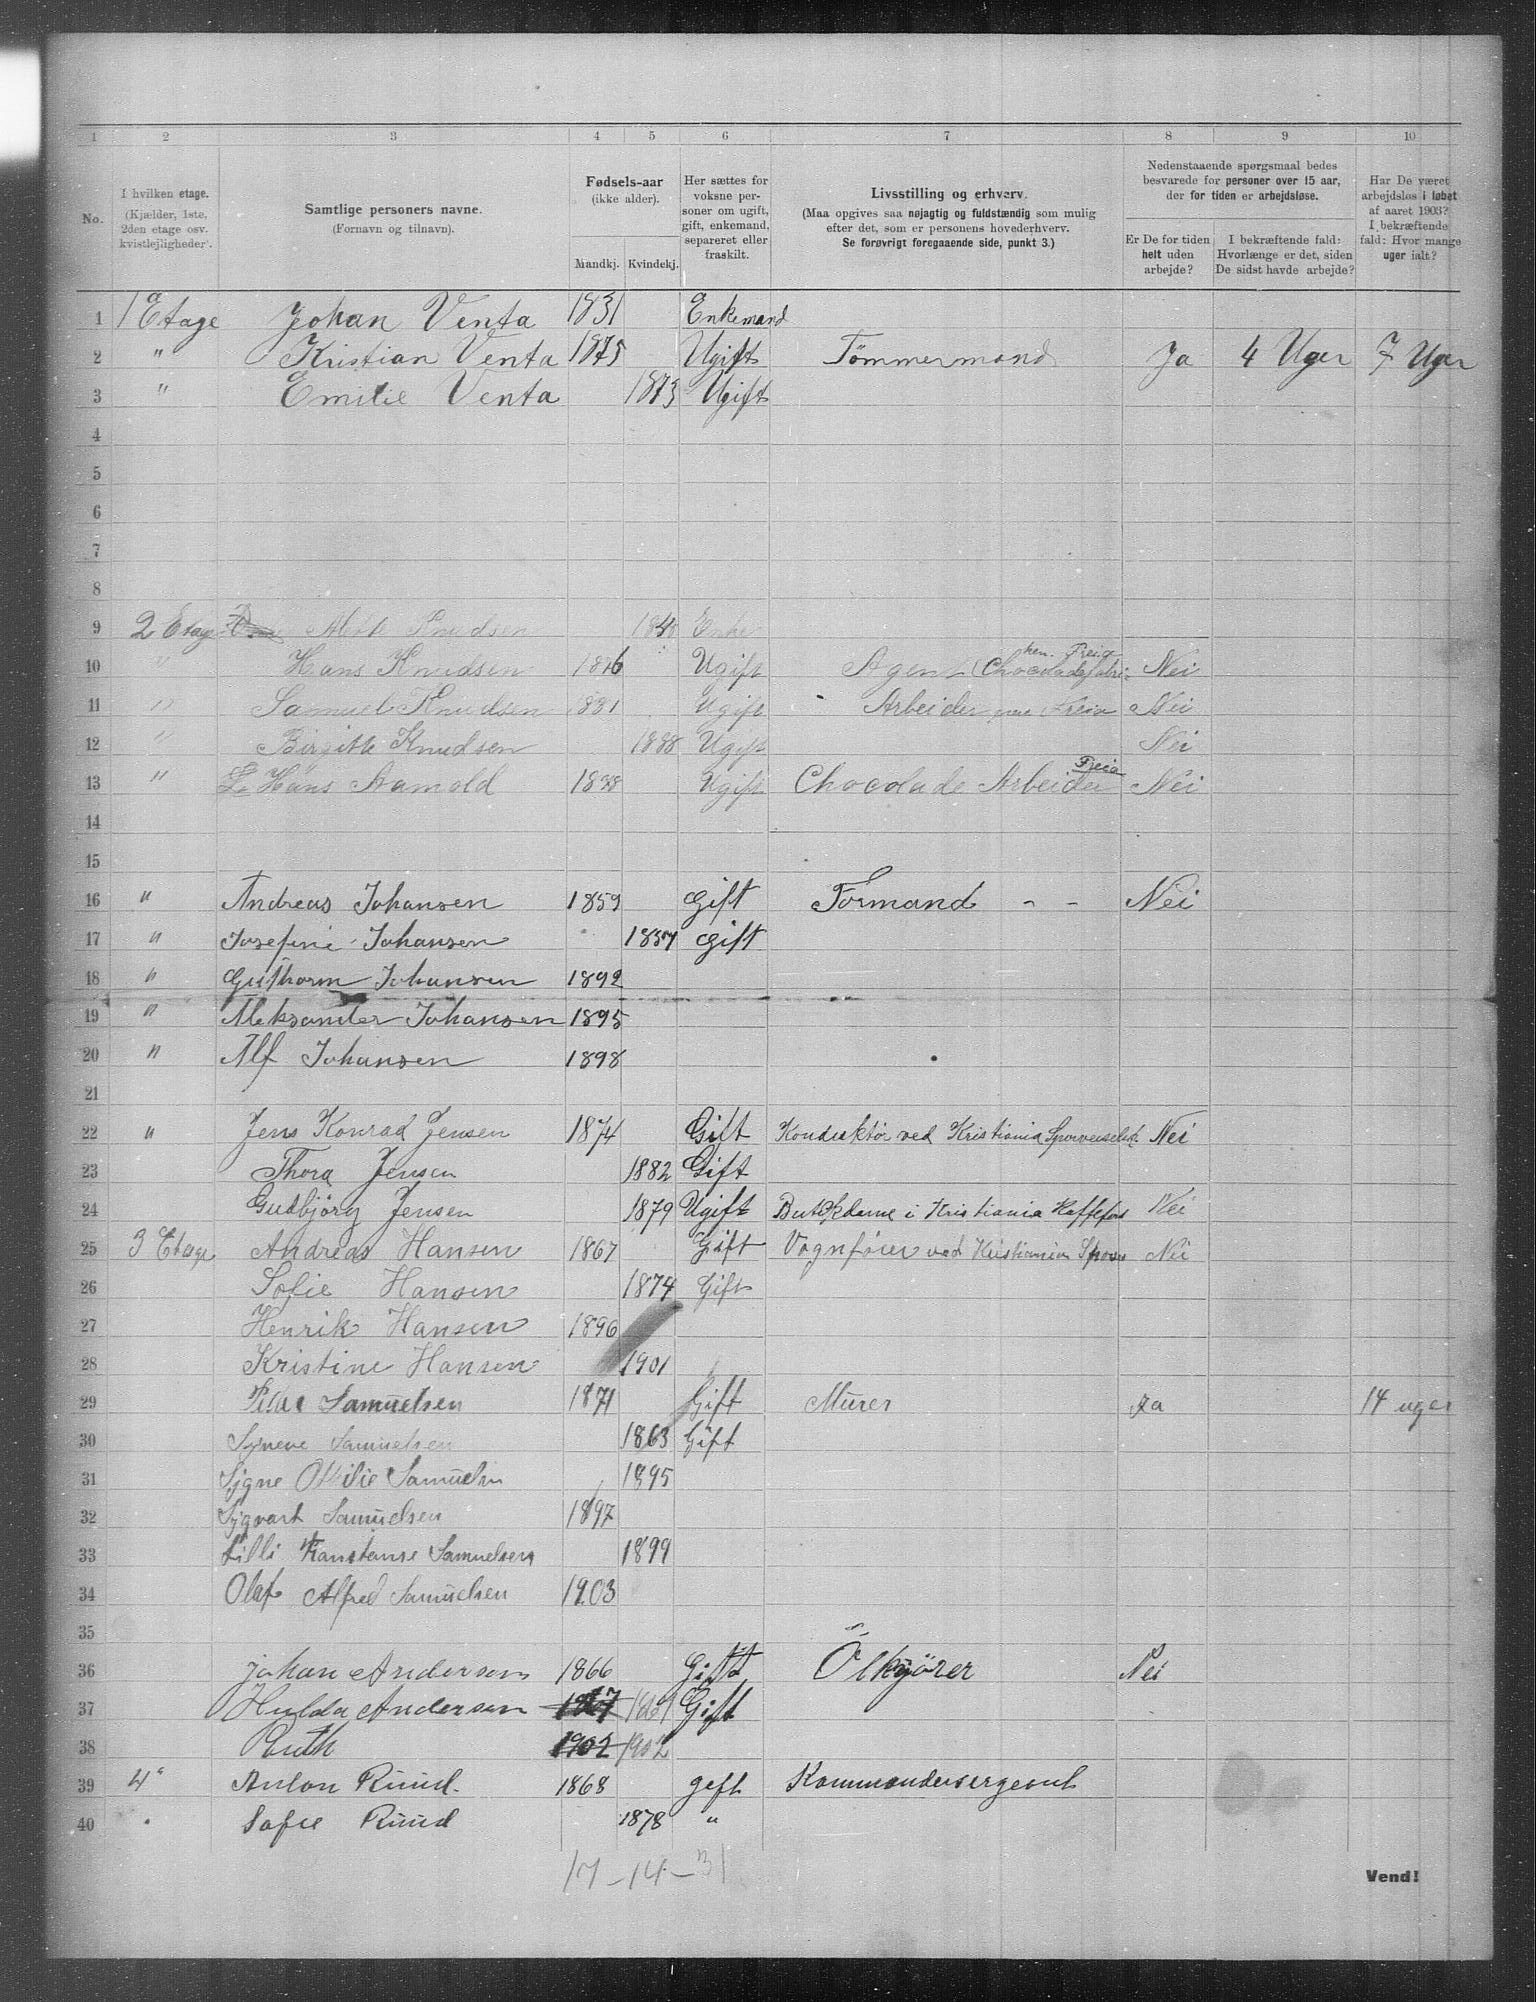 1 2 3 4 5 6 7 8 9 10
No. I hvilken etage. (Kjælder, 1ste, 2den etage osv. kvistlejligheder). Samtlige personers navne. (Fornavn og tilnavn). Fødsels-aar (ikke alder). Mandkj. Kvindekj. Her sættes for voksne personer om ugift, gift, enkemand, separeret eller fraskilt. Livsstilling og erhverv. (Maa opgives saa nøjagtig og fuldstændig som mulig efter det, som er personens hovederhverv. Se forøvrigt foregaaende side, punkt 3.) Nedenstaaende spørgsmaal bedes besvarede for personer over 15 aar, der for tiden er arbejdsløse. Er De for tiden helt uden arbejde? I bekræftende fald: Hvorlænge er det, siden De sidst havde arbejde? Har De været arbejdsløs i løbet af aaret 1903? I bekræftende fald: Hvor mange uger ialt?
1 1 Etage Johan Venta 1831 Enkemand
2 " Kristian Venta 1875 Ugift Tömmermand Ja 4 Uger 7 Uger
3 " Emilie Venta 1873 Ugift
4
5
6
7
8
9 2 Etage Knudsen Enke
10 " Hans Knudsen 1876 Ugift Agent Freia Nei
11 " Samuel Knudsen 1881 Ugift Arbeider Freia Nei
12 " Birgitte Knudsen 1888 Ugift Nei
13 " Hans Ugift Chocolade Arbeider Freia Nei
14
15
16 " Andreas Johansen 1859 Gift Formand - - Nei
17 " Josefine Johansen 1857 gift
18 " Guthorm Johansen 1892
19 " Aleksander Johansen 1895
20 " Alf Johansen 1898
21
22 " Jens Konrad Jensen 1874 Gift Konduktör ved Kristiania Sporveiselsk Nei
23 Thora Jensen 1882 Gift
24 Gudbjörg Jensen 1879 Ugift Butikdame i Kristiania Kaffefor Nei
25 3 Etage Andreas Hansen 1867 Gift Vognfører ved Kristiania Sporv Nei
26 Sofie Hansen 1874 Gift
27 Henrik Hansen 1896
28 Kristine Hansen 1901
29 Peder Samuelsen 1871 Gift Murer Ja 14 uger
30 Syneve Samuelsen 1863 Gift
31 Signe Otilie Samuelsn 1895
32 Sigvart Samuelsen 1897
33 Lilli Konstanse Samuelsen 1899
34 Olaf Alfred Samuelsen 1903
35
36 Johan Andersen 1866 Gift Ölkjörer Nei
37 Hulda Andersen 1867 1867 Gift
38 Ruth 1902 1902
39 4" Anton Ruud. 1868 gift Kommandersergeant
40 " Sofie Ruud 1878 "
17 - 14 - 31
Vend!